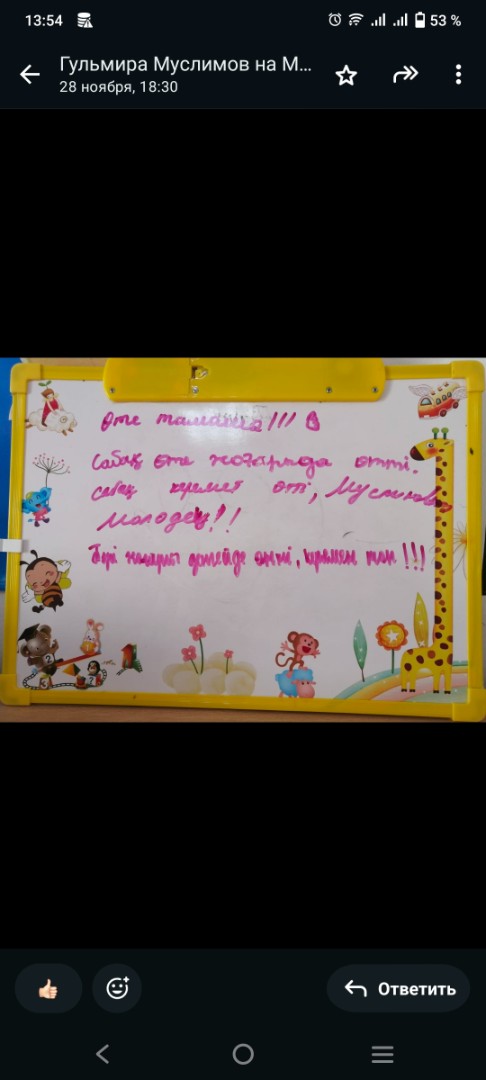 13:54
53 %
Гульмира Муслимов на М...
28 ноября, 18:30
Өте тамаша!!!
Сабақ өте жоғарыда өтті.
сабақ керемет өті, Муслимова
Молодец!!
Бәрі жоғарғы деңгейде өтті, !!!
2
3 2
Ответить